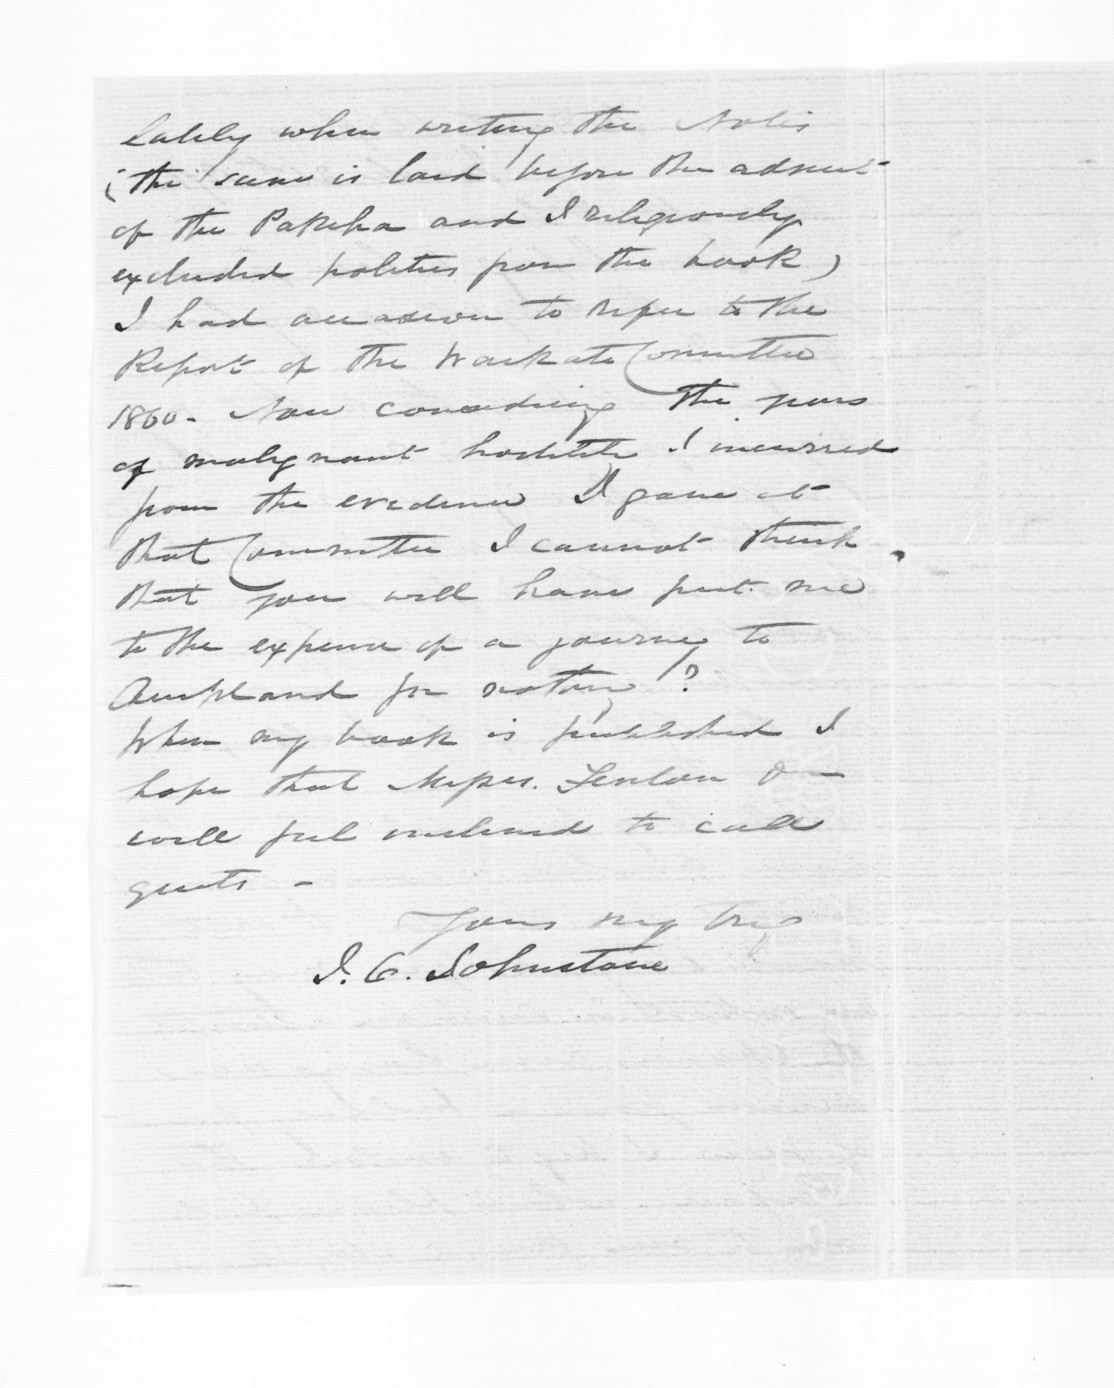 Lately when writing the Notes
(the scene is laid before the advent
of the Pakeha and I religiously
excluded politics from the book)
I had occasion to refer to the
Report of the Waikato Committee
1860. Now considering the years
of malignant hostility I incurred
from the evidence I gave at
that Committee I cannot think
that you will have put me
to the expense of a journey to
Auckland for nothing?
When my book is published I
hope that Messrs. Fenton &
will feel inclined to call
quits -
Yours very truly
J. C. Johnstone